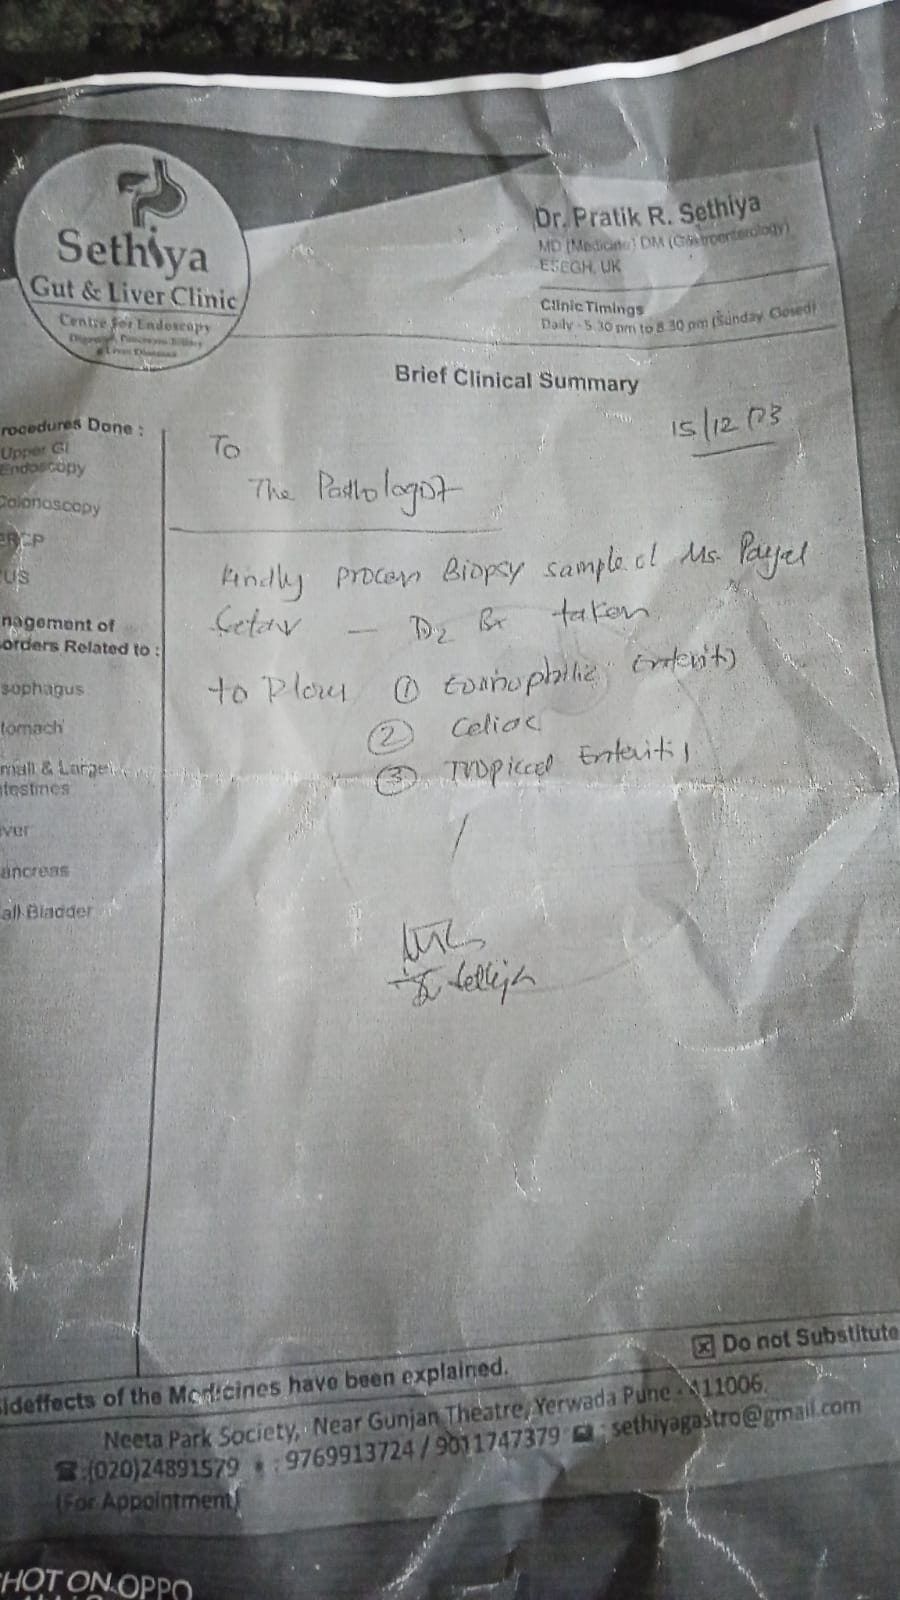 Sethiya
Gut & Liver Clinic
Centre for Endoscopy
Dr. Pratik R. Sethiya
MD (Medicine) DM (Gastroenterology)
ESEGH, UK
Clinic Timings
Daily - 5.30 pm to 8.30 pm (Sunday Closed)
Brief Clinical Summary
15/12/23
rocedures Done :
Upper GI
Endoscopy
Colonoscopy
ERCP
EUS
nagement of
orders Related to :
sophagus
tomach
mall & Large
testines
ver
ancreas
all Bladder
To
The Pathologist
Kindly process Biopsy sample of Ms. Payal
— D2 Bx taken
to
① Eosinophilic Enteritis
② Celiac
③ Tropical Enteritis
Do not Substitute
ideffects of the Medicines have been explained.
Neeta Park Society, Near Gunjan Theatre, Yerwada Pune - 411006.
:(020)24891579 : 9769913724 / 9011747379 : sethiyagastro@gmail.com
(For Appointment)
HOT ON OPPO